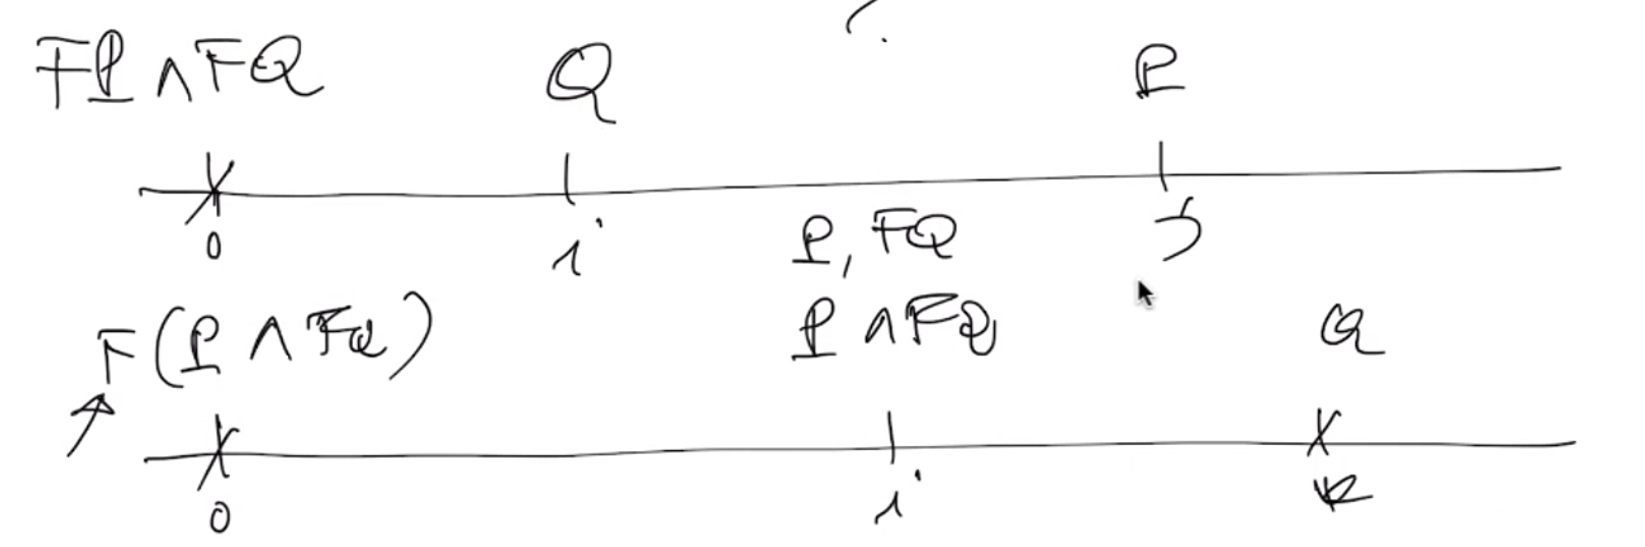 FP ∧ FQ Q P
0 i j
P, FQ
F(P ∧ FQ) P ∧ FQ Q
0 i k